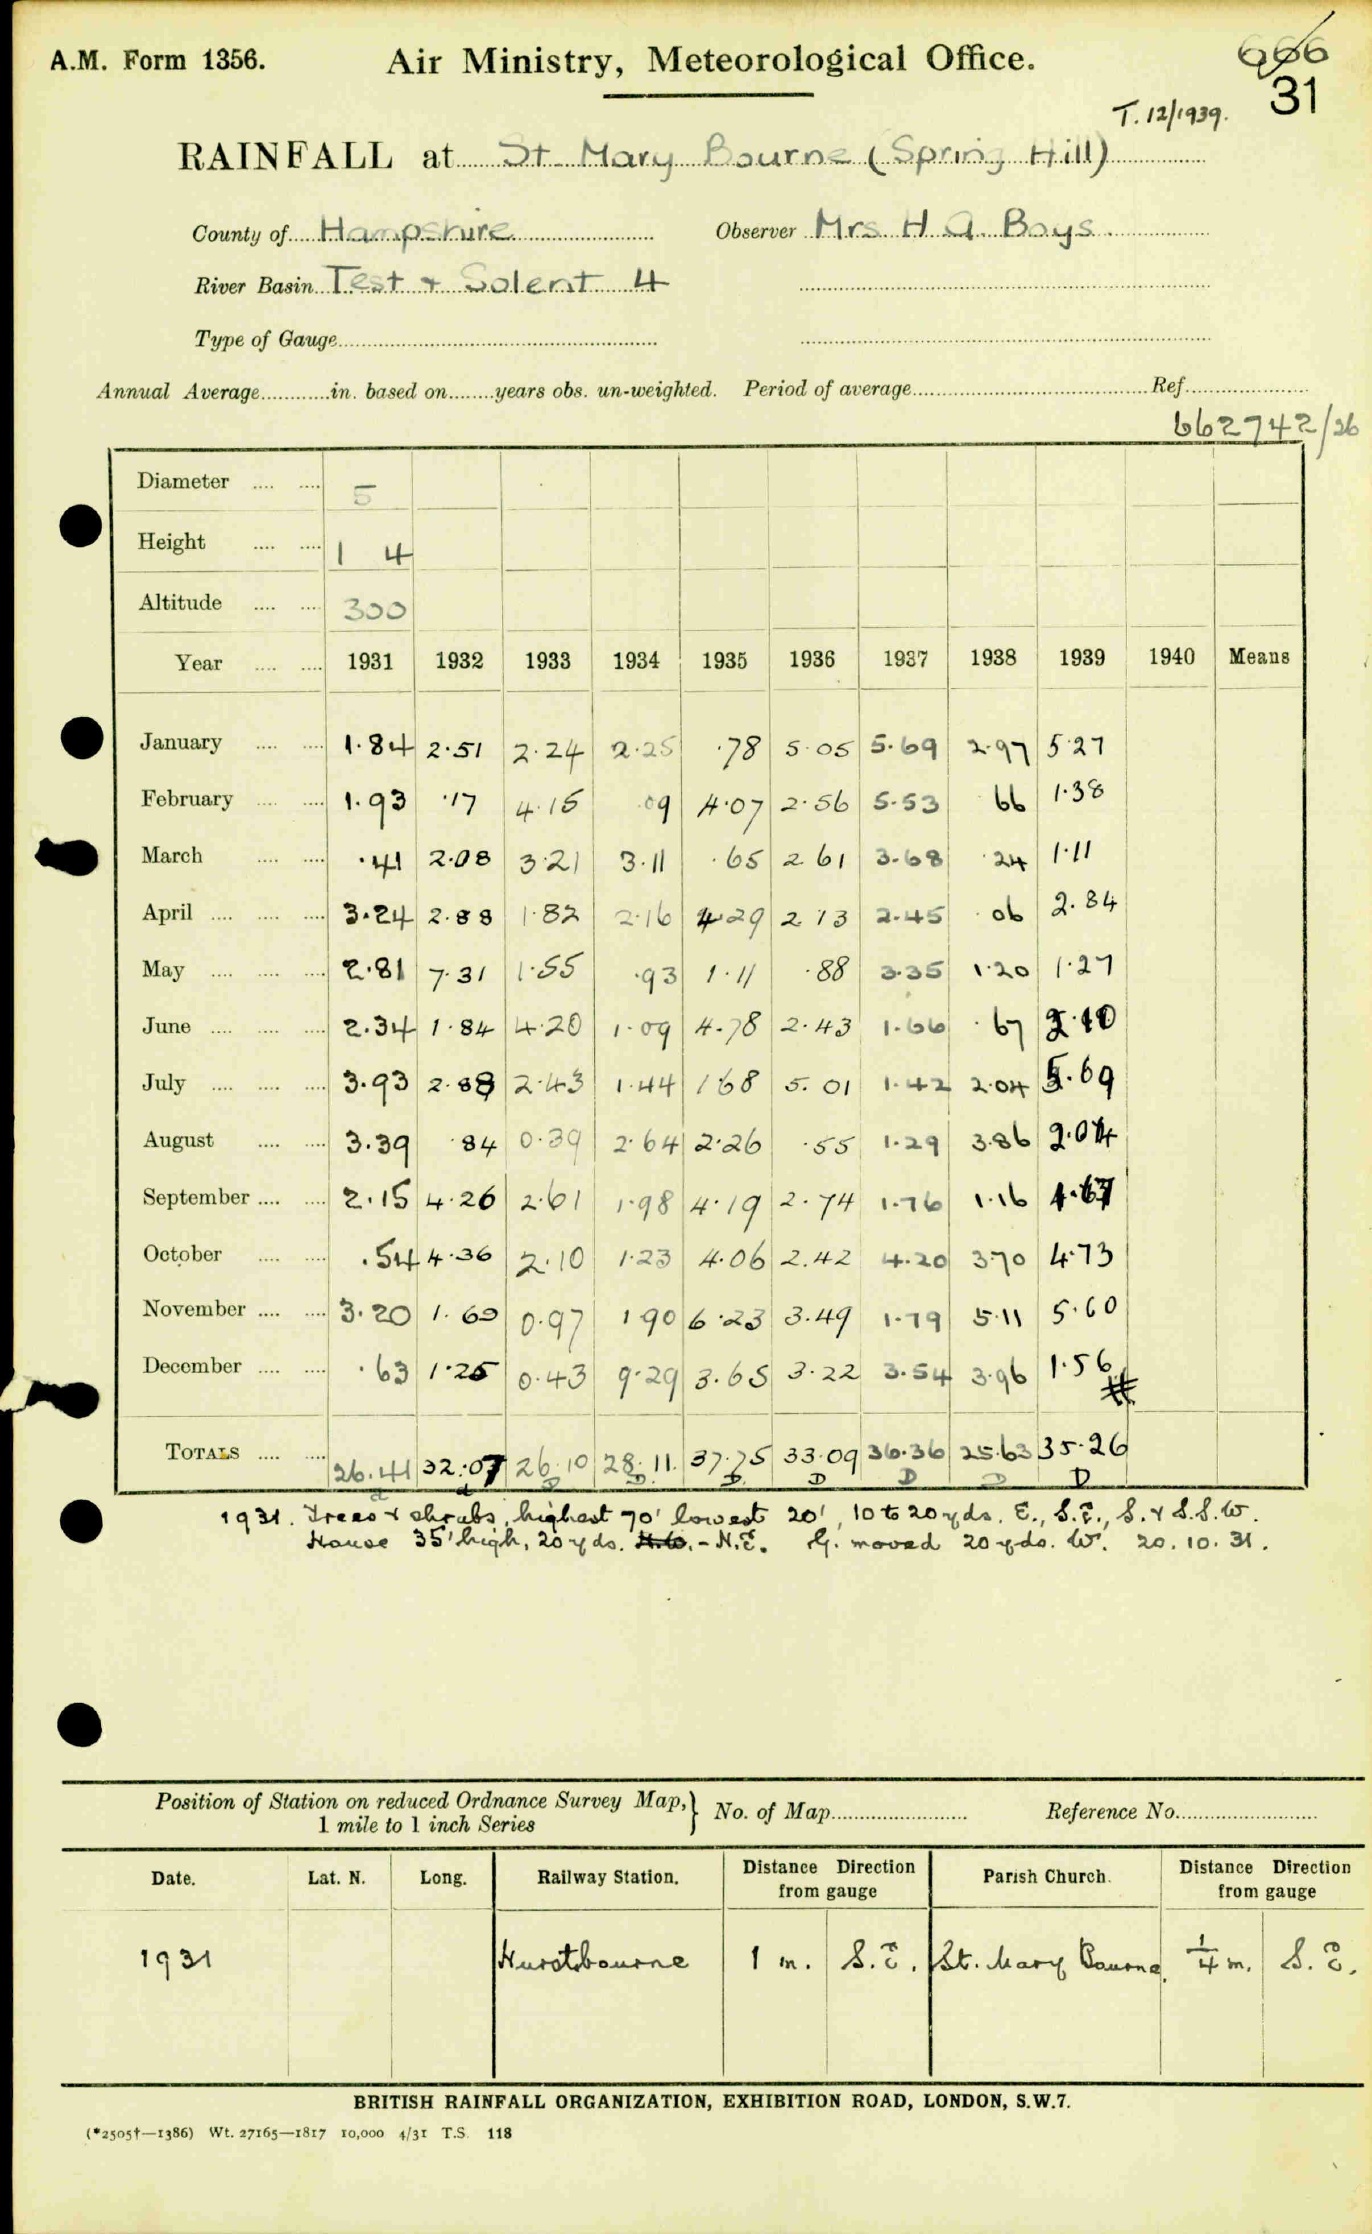 A.M. Form 1356.
Air Ministry, Meteorological Office.
666
31
T. 12/1939.
RAINFALL at St Mary Bourne (Spring Hill)
County of Hampshire Observer Mrs H A Boys.
River Basin Test + Solent 4
Type of Gauge
Annual Average in. based on years obs. un-weighted. Period of average Ref.
662742/26
Diameter 5
Height 1 4
Altitude 300
Year 1931 1932 1933 1934 1935 1936 1937 1938 1939 1940 Means
January 1.84 2.51 2.24 2.25 .78 5.05 5.69 2.97 5.27
February 1.93 .17 4.15 .09 4.07 2.56 5.53 66 1.38
March .41 2.08 3.21 3.11 .65 2 61 3.68 .24 1.11
April 3.24 2.88 1.82 2.16 4.29 2 13 2.45 .06 2.84
May 2.81 7.31 1.55 .93 1.11 .88 3.35 1.20 1.27
June 2.34 1.84 4.20 1.09 4.78 2.43 1.66 .67 2.10
July 3.93 2.88 2.43 1.44 1.68 5.01 1.42 2.04 5.69
August 3.39 .84 0.39 2.64 2.26 .55 1.29 3.86 2.04
September 2.15 4.26 2.61 1.98 4.19 2.74 1.76 1.16 1.67
October .54 4.36 2.10 1.23 4.06 2.42 4.20 3.70 4.73
November 3.20 1.69 0.97 1.90 6.23 3.49 1.79 5.11 5.60
December .63 1.25 0.43 9.29 3.65 3.22 3.54 3.96 1.56
TOTALS 26.41 32.07 26.10 28.11. 37.75 33.09 36.36 25.63 35.26
D D D D D D D
1931. Trees & shrubs, highest 70' lowest 20', 10 to 20 yds. E., S.E., S. & S.S.W.
House 35' high, 20 yds. N.W. - N.E. G. moved 20 yds. W. 20.10.31.
Position of Station on reduced Ordnance Survey Map, } No. of Map Reference No.
1 mile to 1 inch Series
Date. Lat. N. Long. Railway Station. Distance Direction from gauge Parish Church. Distance Direction from gauge
1931 Hurstbourne 1 m. S.E. St. Mary Bourne. 1/4 m. S.E.
BRITISH RAINFALL ORGANIZATION, EXHIBITION ROAD, LONDON, S.W.7.
(*2505†—1386) Wt. 27165—1817 10,000 4/31 T.S. 118